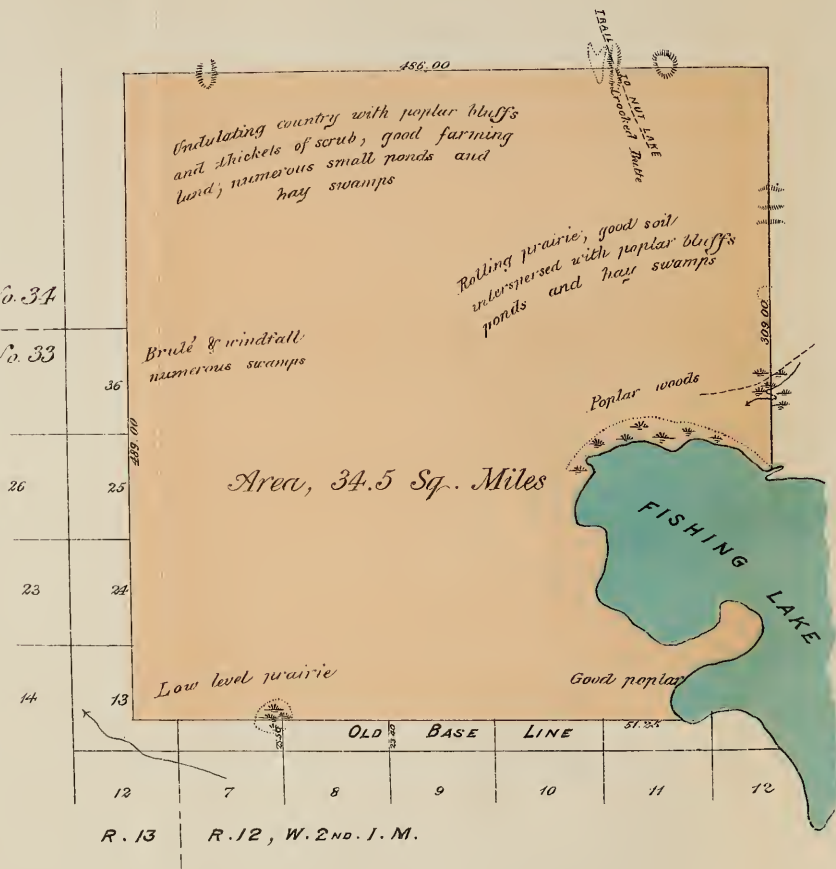 TRAIL TO NUT LAKE
Crooked Butte
486.00
Undulating country with poplar bluffs
and thickets of scrub; good farming
land; numerous small ponds and
hay swamps
Rolling prairie, good soil
interspersed with poplar bluffs
ponds and hay swamps
o. 34
o. 33
Brulé & windfall
numerous swamps
309.00
36
489.00
Poplar woods
26
25
Area, 34.5 Sq. Miles
FISHING LAKE
23
24
14
13
Low level prairie
Good poplar
OLD BASE LINE
51.25
12
7
8
9
10
11
12
R. 13
R. 12, W. 2ND. I. M.